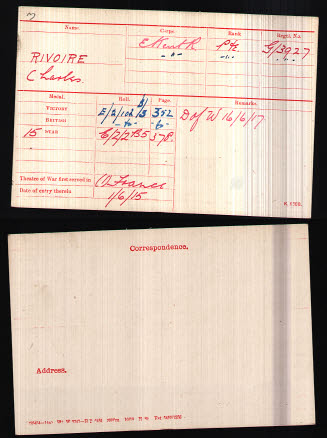 Name. Corps. Rank Regtl. No.
RIVOIRE E Kent R Pte G/3927
Charles.
Medal. Roll. Page. Remarks.
VICTORY 352 D of W 16/6/17
BRITISH -do- -do-
15 STAR 578.
Theatre of War first served in (1) France
Date of entry therein 1/6/15
K. 1380.
Correspondence.
Address.